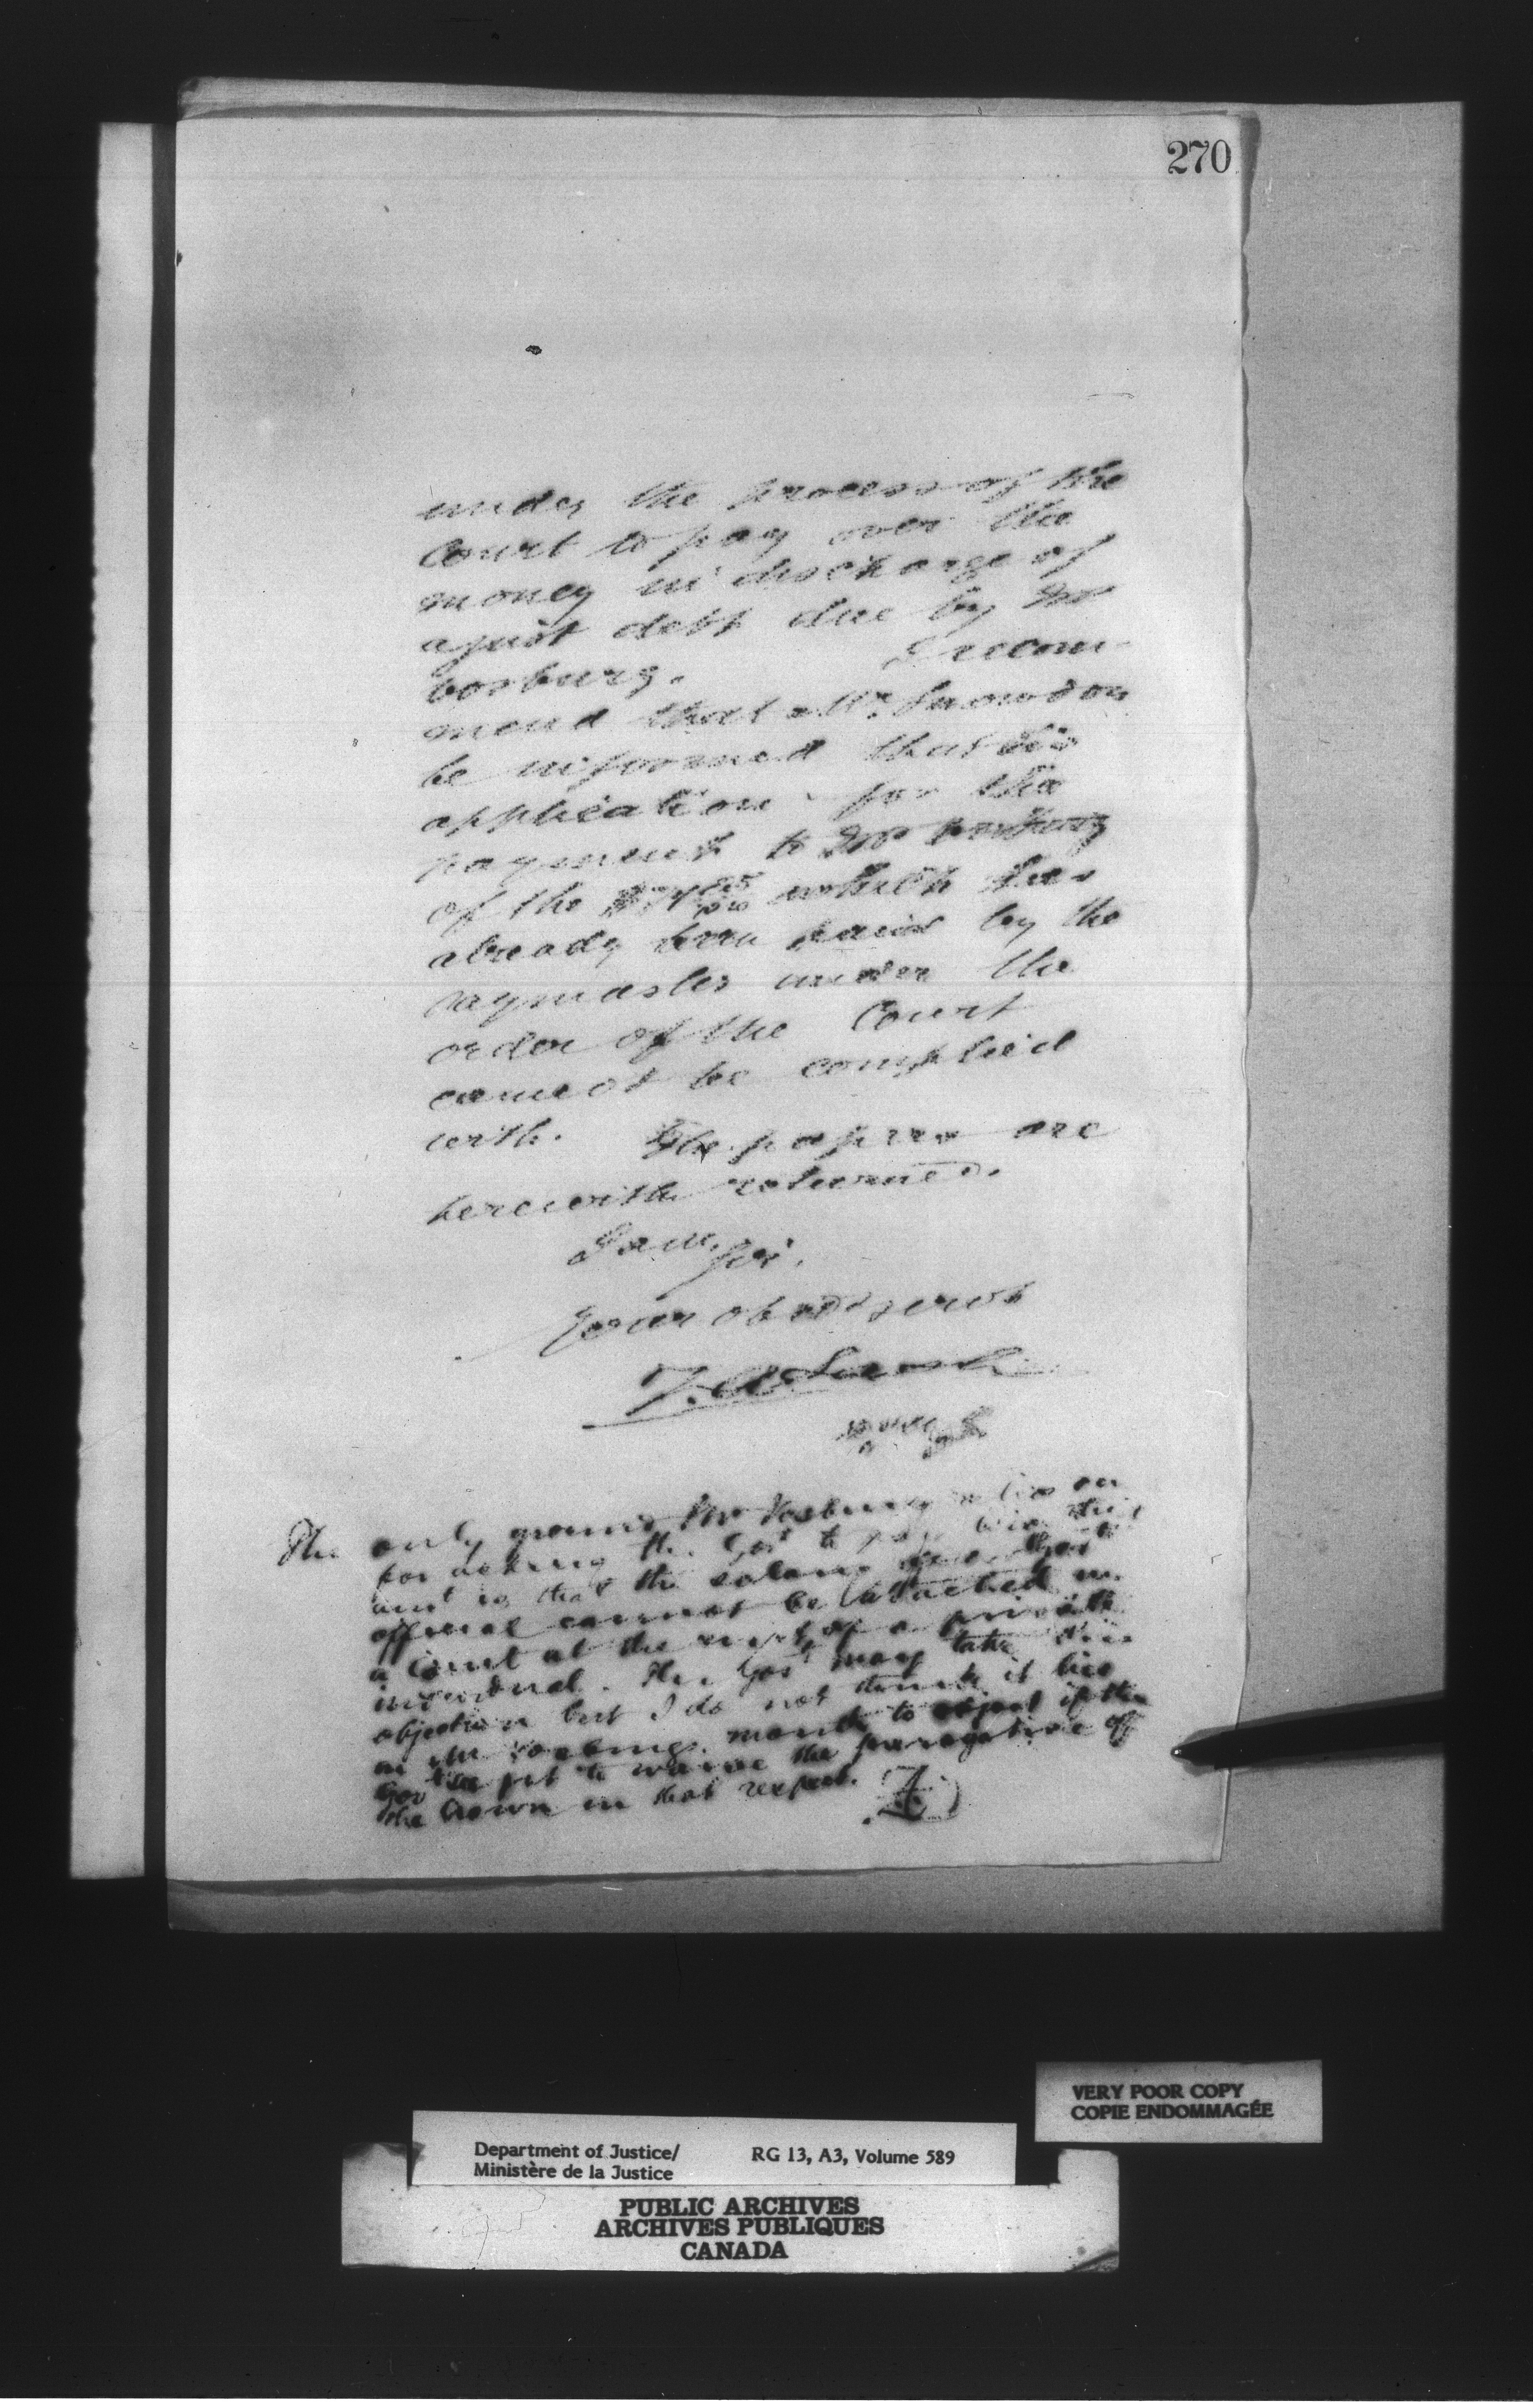 270
under the process of the
Court to pay over the
money in discharge of
a just debt due by Mr
Vosburg. I recom-
mend that Mr. Snowdon
be informed that his
application for the
payment to Mr Vosburg
of the which has
already been paid by the
paymaster under the
order of the Court
cannot be complied
with. The papers are
herewith returned.
I am, Sir,
Your obedt servt
The only ground Mr Vosburg relies on
for asking the Govt to pay him this
amt is that the salary of a Govt
official cannot be attached in
a Court at the suit of a private
individual. The Govt may take this
objection but I do not think it lies
in Mr Vosburgs mouth to object if the
Govt see fit to waive the prerogative of
the Crown in that respect.
VERY POOR COPY
COPIE ENDOMMAGÉE
Department of Justice/ RG 13, A3, Volume 589
Ministère de la Justice
PUBLIC ARCHIVES
ARCHIVES PUBLIQUES
CANADA